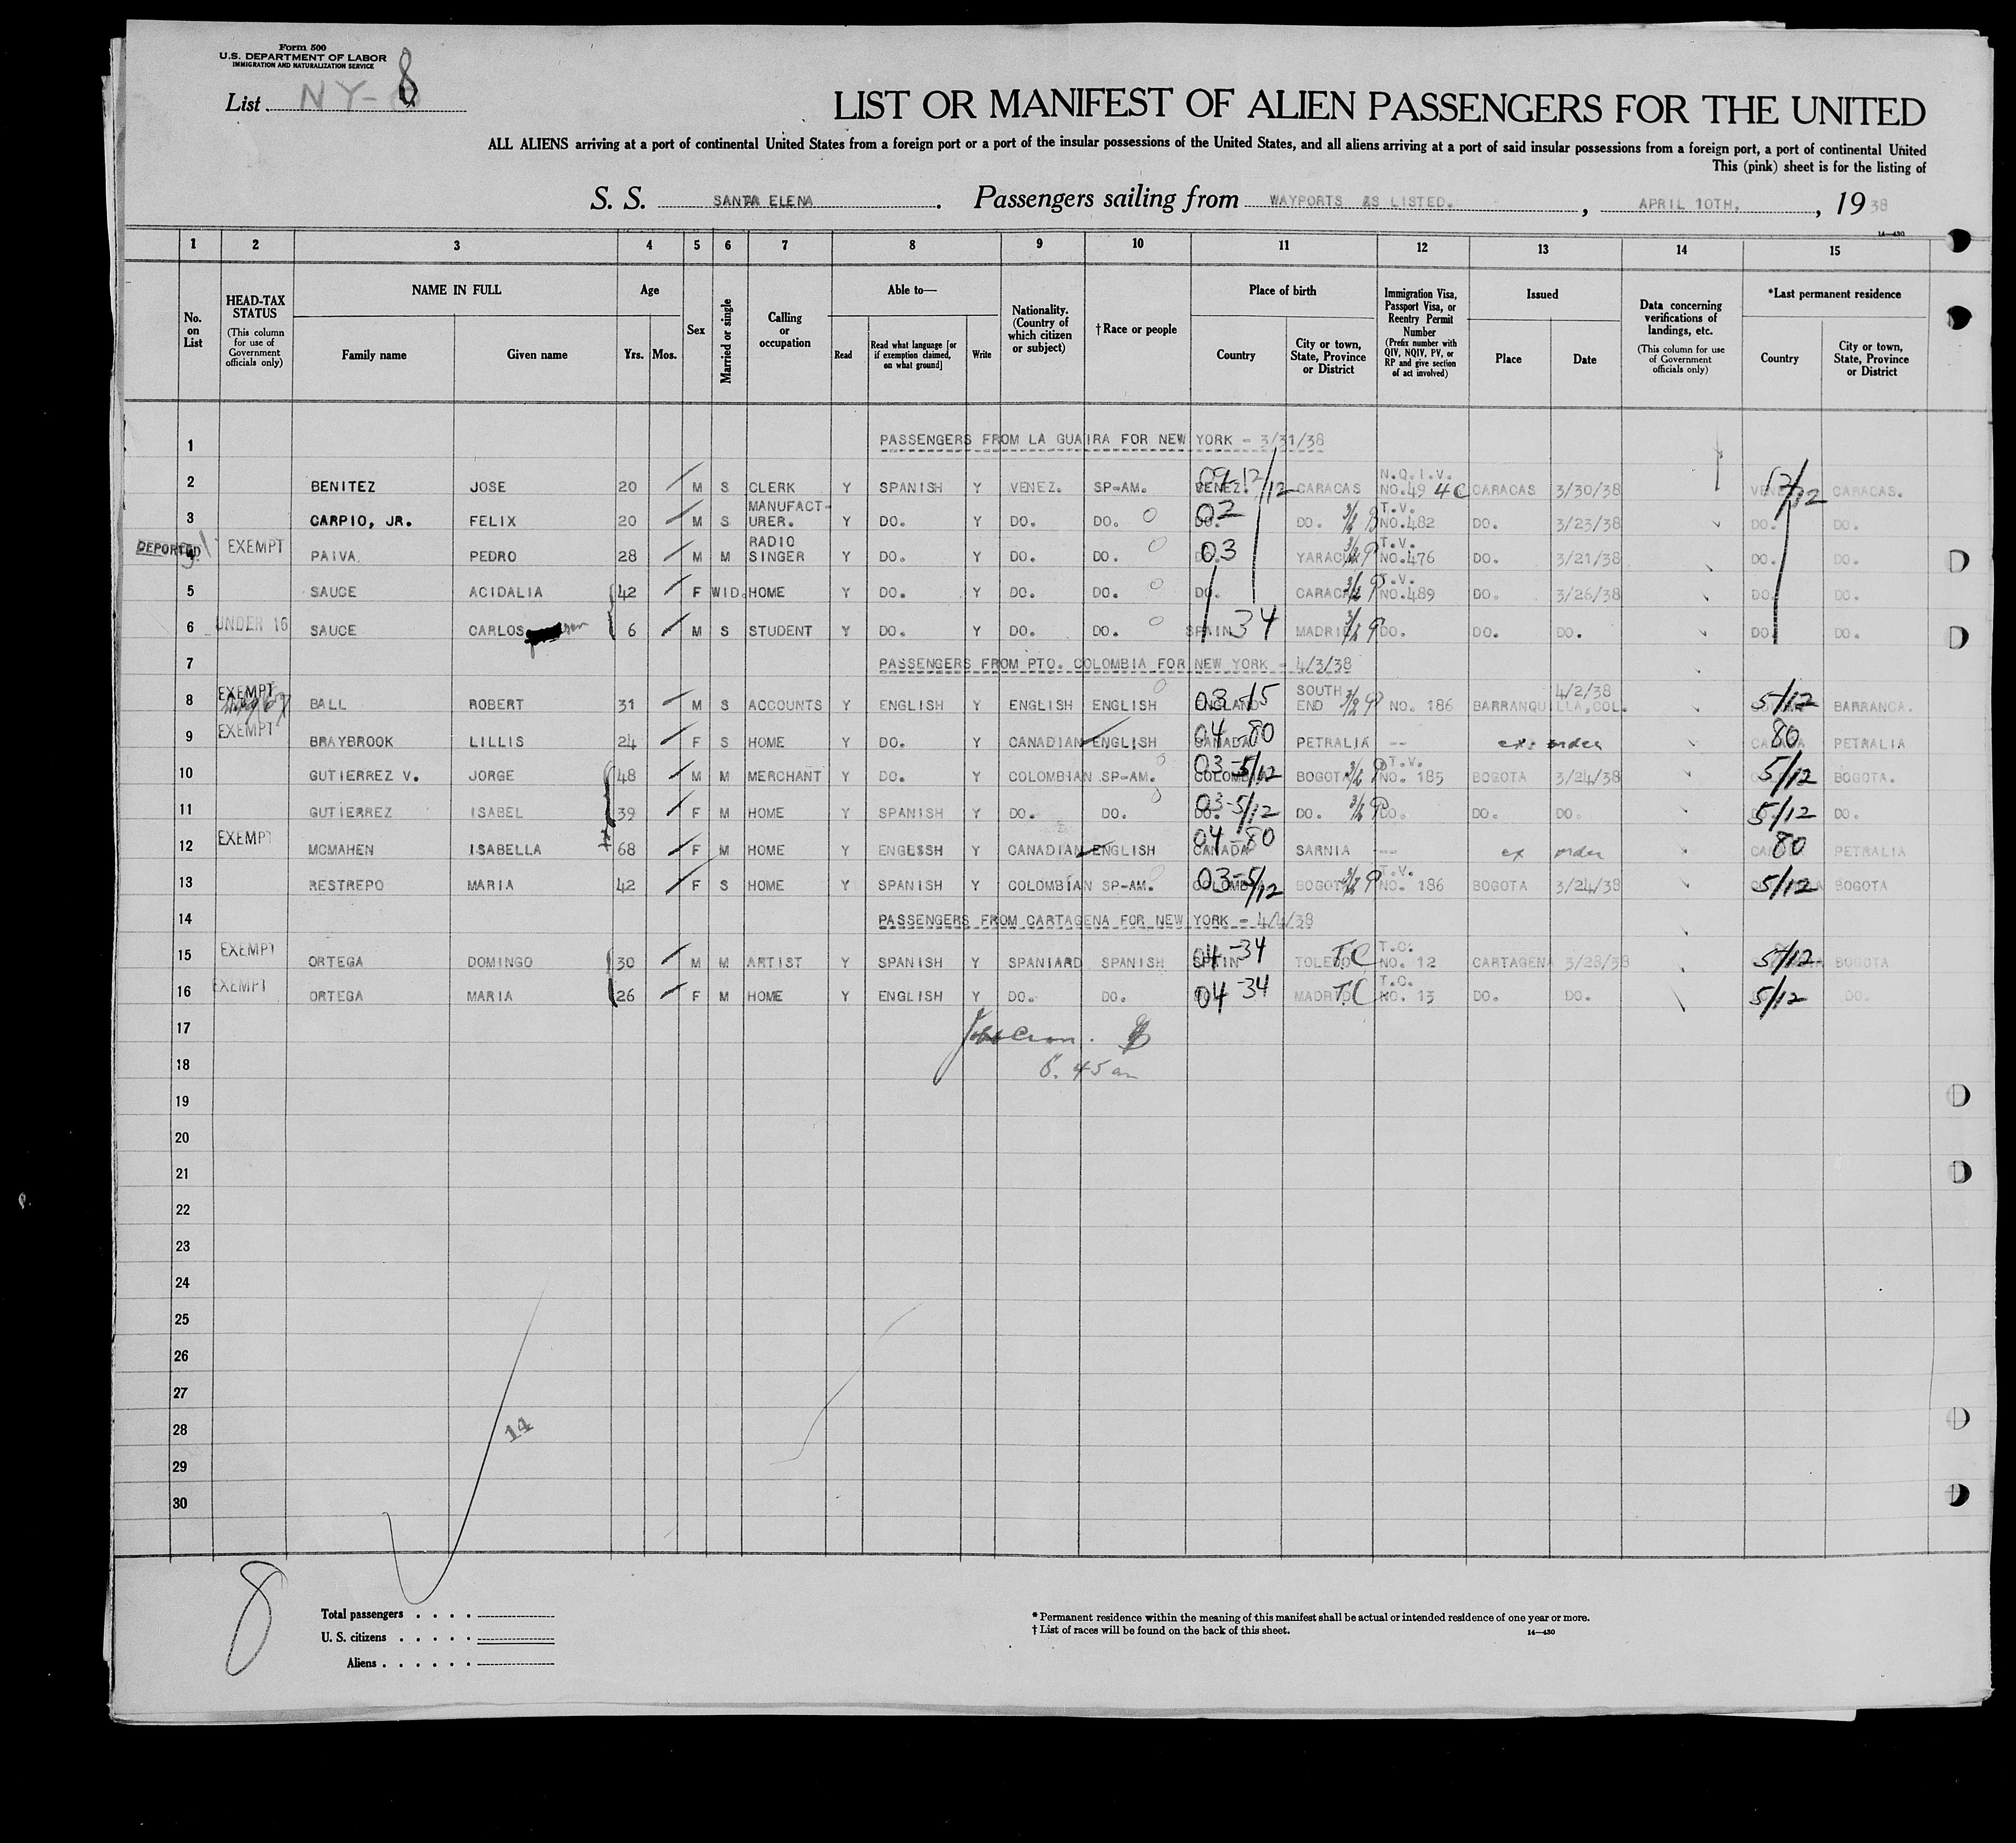 Form 500
U.S. DEPARTMENT OF LABOR
IMMIGRATION AND NATURALIZATION SERVICE
List NY-8
LIST OR MANIFEST OF ALIEN PASSENGERS FOR THE UNITED
ALL ALIENS arriving at a port of continental United States from a foreign port or a port of the insular possessions of the United States, and all aliens arriving at a port of said insular possessions from a foreign port, a port of continental United
This (pink) sheet is for the listing of
S. S. SANTA ELENA. Passengers sailing from WAYPORTS AS LISTED., APRIL 10TH., 1938
14—430
1 2 3 4 5 6 7 8 9 10 11 12 13 14 15
No. on List
HEAD-TAX STATUS (This column for use of Government officials only)
NAME IN FULL
Family name Given name
Age
Yrs. Mos.
Sex
Married or single
Calling or occupation
Able to—
Read
Read what language [or if exemption claimed, on what ground]
Write
Nationality. (Country of which citizen or subject)
† Race or people
Place of birth
Country
City or town, State, Province or District
Immigration Visa, Passport Visa, or Reentry Permit Number (Prefix number with QIV, NQIV, PV, or RP and give section of act involved)
Issued
Place Date
Data concerning verifications of landings, etc. (This column for use of Government officials only)
*Last permanent residence
Country
City or town, State, Province or District
1 PASSENGERS FROM LA GUAIRA FOR NEW YORK - 3/31/38
2 BENITEZ JOSE 20 M S CLERK Y SPANISH Y VENEZ. SP-AM. VENEZ. 12/12 CARACAS N.Q.I.V. NO.49 4C CARACAS 3/30/38 12/12 CARACAS.
3 CARPIO, JR. FELIX 20 M S MANUFACT-URER. Y DO. Y DO. DO. 02 DO. 3/2 T.V. NO.482 DO. 3/23/38 DO. DO.
DEPORTED 4 EXEMPT PAIVA PEDRO 28 M M RADIO SINGER Y DO. Y DO. DO. 03 T.V. NO.476 DO. 3/21/38 DO. DO.
5 SAUCE ACIDALIA 42 F WID. HOME Y DO. Y DO. DO. DO. T.V. NO.489 DO. 3/26/38 DO. DO.
6 UNDER 16 SAUCE CARLOS 6 M S STUDENT Y DO. Y DO. DO. SPAIN 34 MADRID 3/2 DO. DO. DO. DO. DO.
7 PASSENGERS FROM PTO. COLOMBIA FOR NEW YORK - 4/3/38
8 EXEMPT BALL ROBERT 31 M S ACCOUNTS Y ENGLISH Y ENGLISH ENGLISH ENGLAND 03-15 SOUTH END 3/2 NO. 186 BARRANQUILLA,COL. 4/2/38 5/12 BARRANCA.
9 EXEMPT BRAYBROOK LILLIS 24 F S HOME Y DO. Y CANADIAN ENGLISH CANADA 04-80 PETRALIA -- ex: order 80 PETRALIA
10 GUTIERREZ V. JORGE 48 M M MERCHANT Y DO. Y COLOMBIAN SP-AM. 03-5/12 BOGOTA 3/2 T.V. NO. 185 BOGOTA 3/24/38 5/12 BOGOTA.
11 GUTIERREZ ISABEL 39 F M HOME Y SPANISH Y DO. DO. DO. 03-5/12 DO. 3/2 DO. DO. DO. 5/12 DO.
12 EXEMPT MCMAHEN ISABELLA 68 F M HOME Y ENGLSSH Y CANADIAN ENGLISH CANADA 04-80 SARNIA --- ex order 80 PETRALIA
13 RESTREPO MARIA 42 F S HOME Y SPANISH Y COLOMBIAN SP-AM. 03-5/12 BOGOTA 3/2 T.V. NO. 186 BOGOTA 3/24/38 5/12 BOGOTA
14 PASSENGERS FROM CARTAGENA FOR NEW YORK - 4/4/38
15 EXEMPT ORTEGA DOMINGO 30 M M ARTIST Y SPANISH Y SPANIARD SPANISH SPAIN 04-34 TOLEDO TC T.C. NO. 12 CARTAGENA 3/28/38 5/12 BOGOTA
16 EXEMPT ORTEGA MARIA 26 F M HOME Y ENGLISH Y DO. DO. 04-34 MADRID TC T.C. NO. 13 DO. DO. 5/12 DO.
17
18
19
20
21
22
23
24
25
26
27
28
29
30
14
8
Total passengers
U. S. citizens
Aliens
* Permanent residence within the meaning of this manifest shall be actual or intended residence of one year or more.
† List of races will be found on the back of this sheet.
14—430